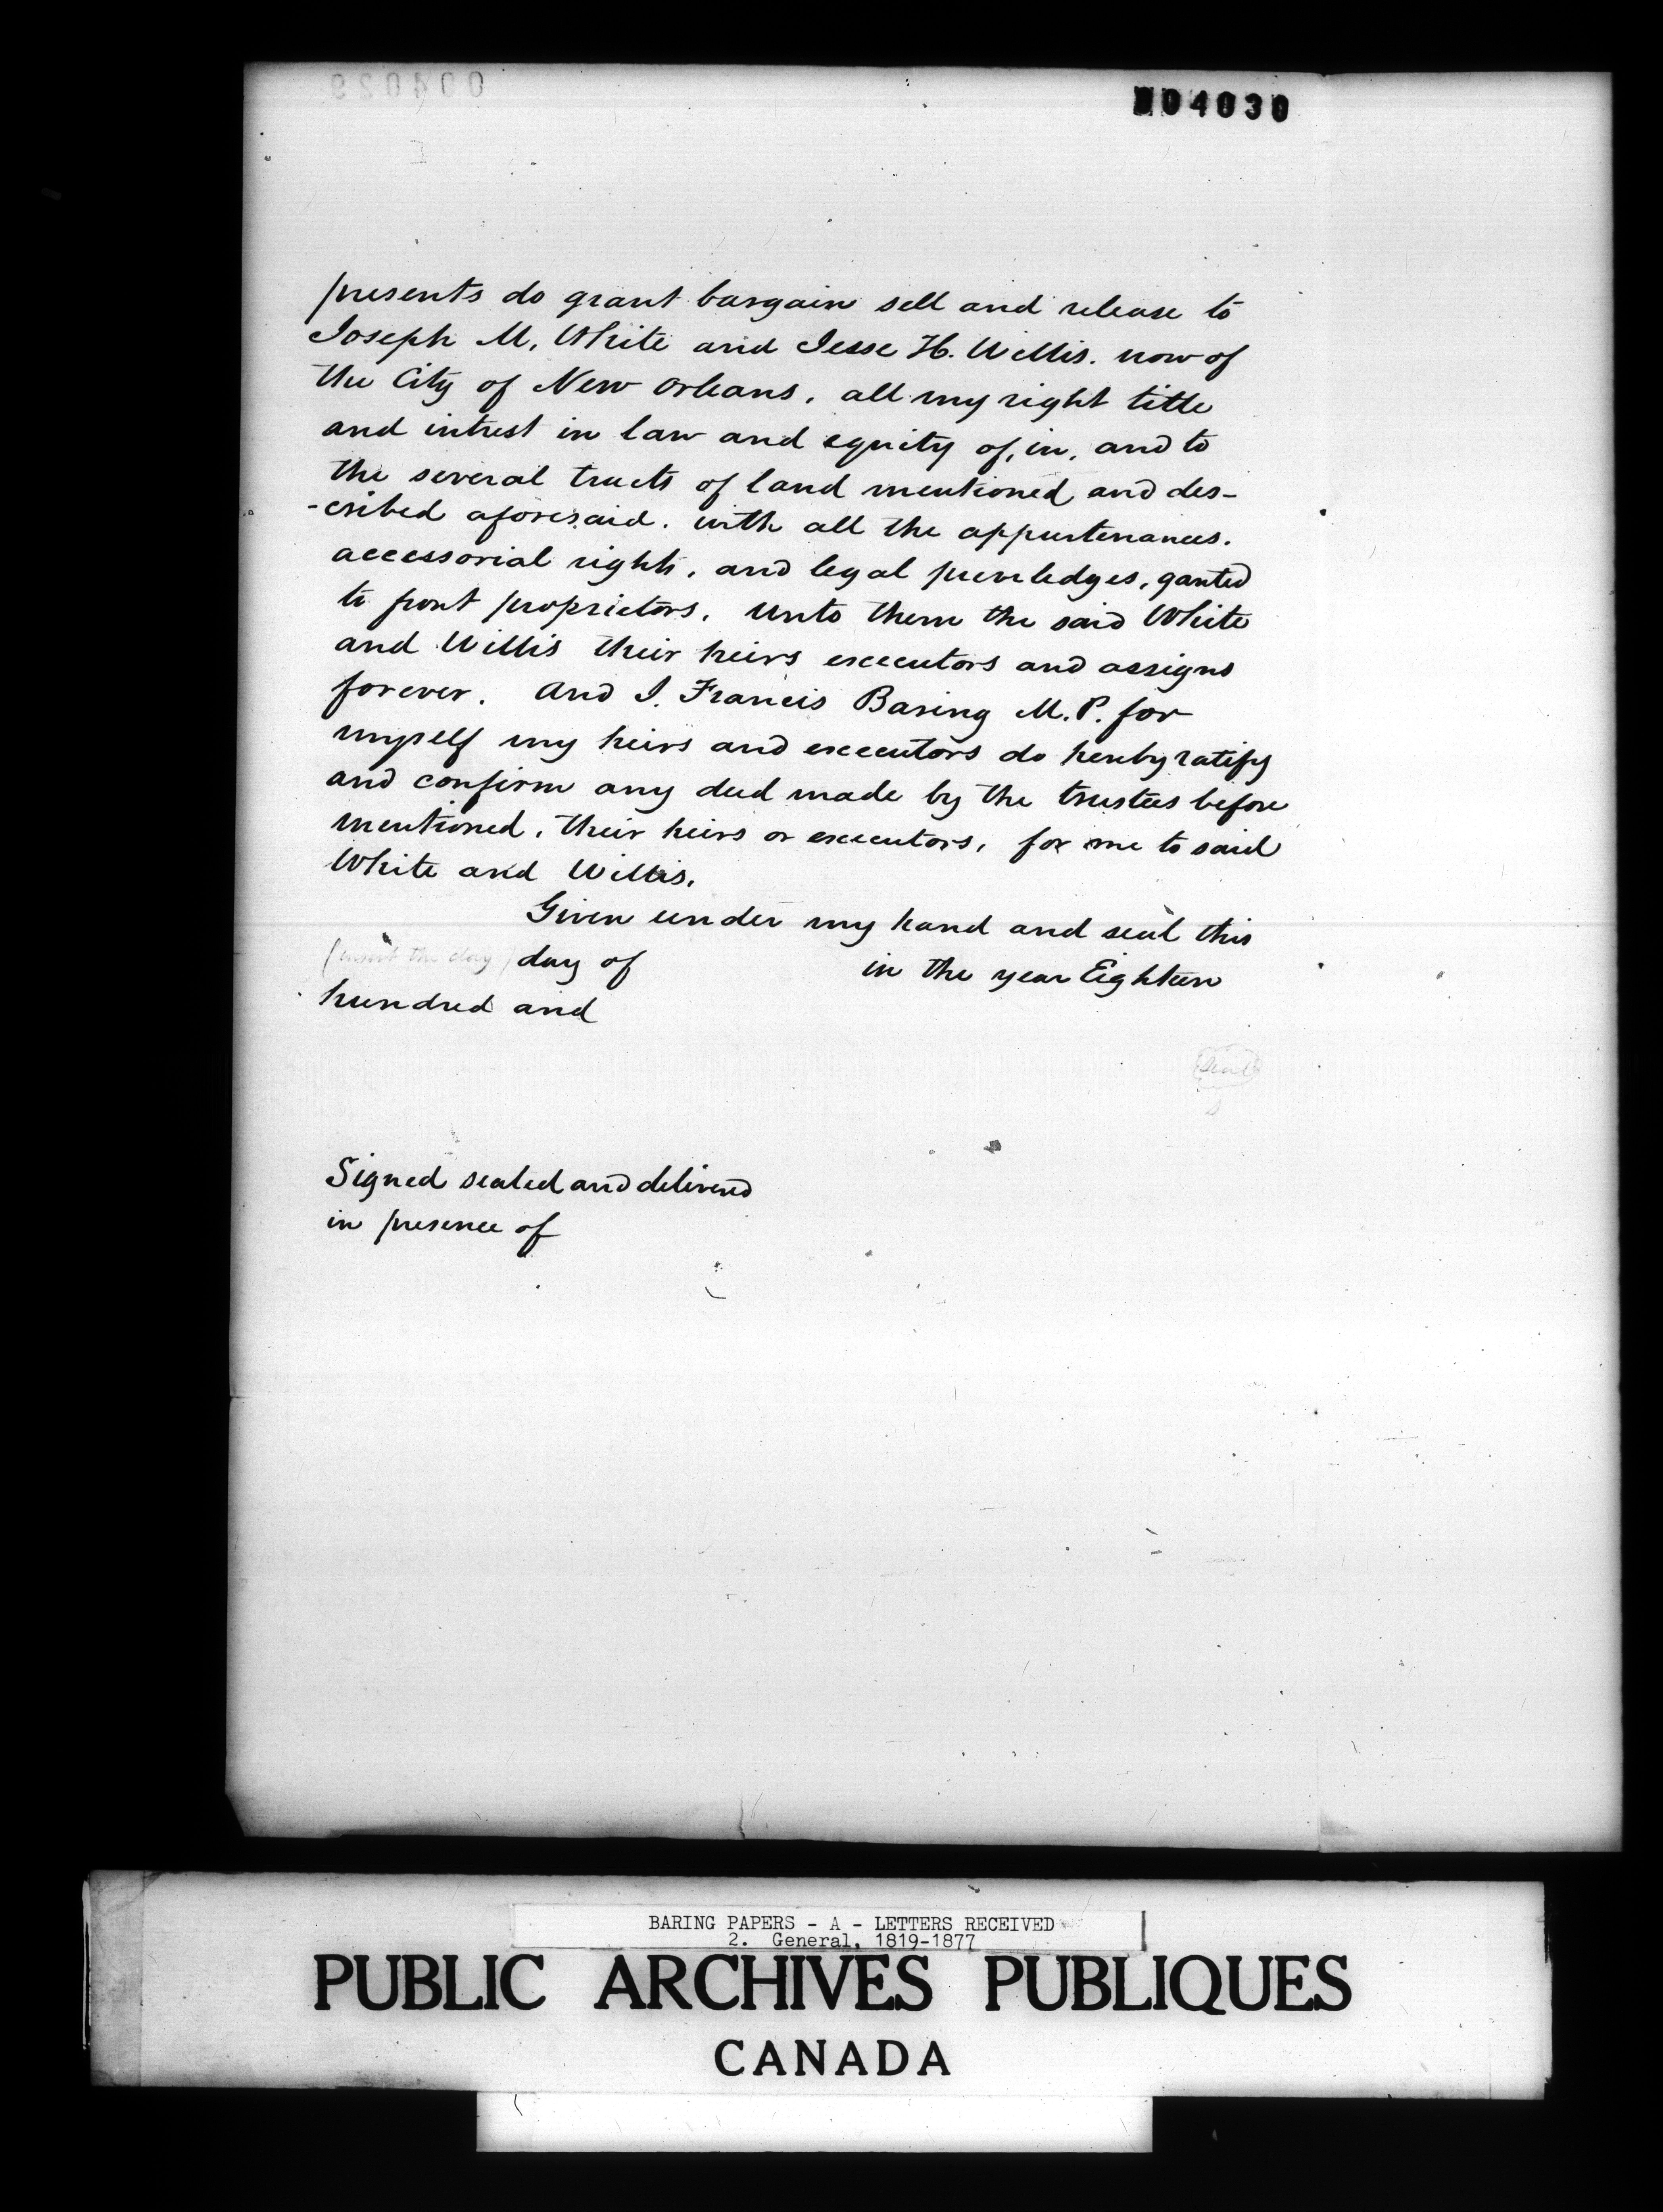 004029
004030
presents do grant bargain sell and release to
Joseph M. White and Jesse H. Willis. now of
the City of New Orleans, all my right title
and intrest in law and equity of, in, and to
the several tracts of land mentioned and des-
-cribed aforesaid. with all the appurtenances.
accessorial rights, and legal priviledges, ganted
to front proprietors. Unto them the said White
and Willis their heirs executors and assigns
forever. And I. Francis Baring M.P. for
myself my heirs and executors do hereby ratify
and confirm any deed made by the trustees before
mentioned, their heirs or executors, for me to said
White and Willis.
Given under my hand and seal this
(insert the day) day of in the year Eighteen
hundred and
Seal
Signed sealed and delivered
in presence of
BARING PAPERS - A - LETTERS RECEIVED
2. General, 1819-1877
PUBLIC ARCHIVES PUBLIQUES
CANADA